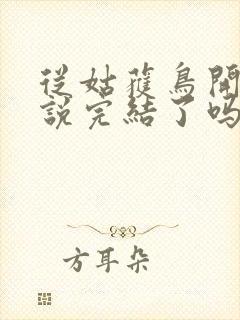 從姑獲鳥開
說完結了嗎
方耳朵